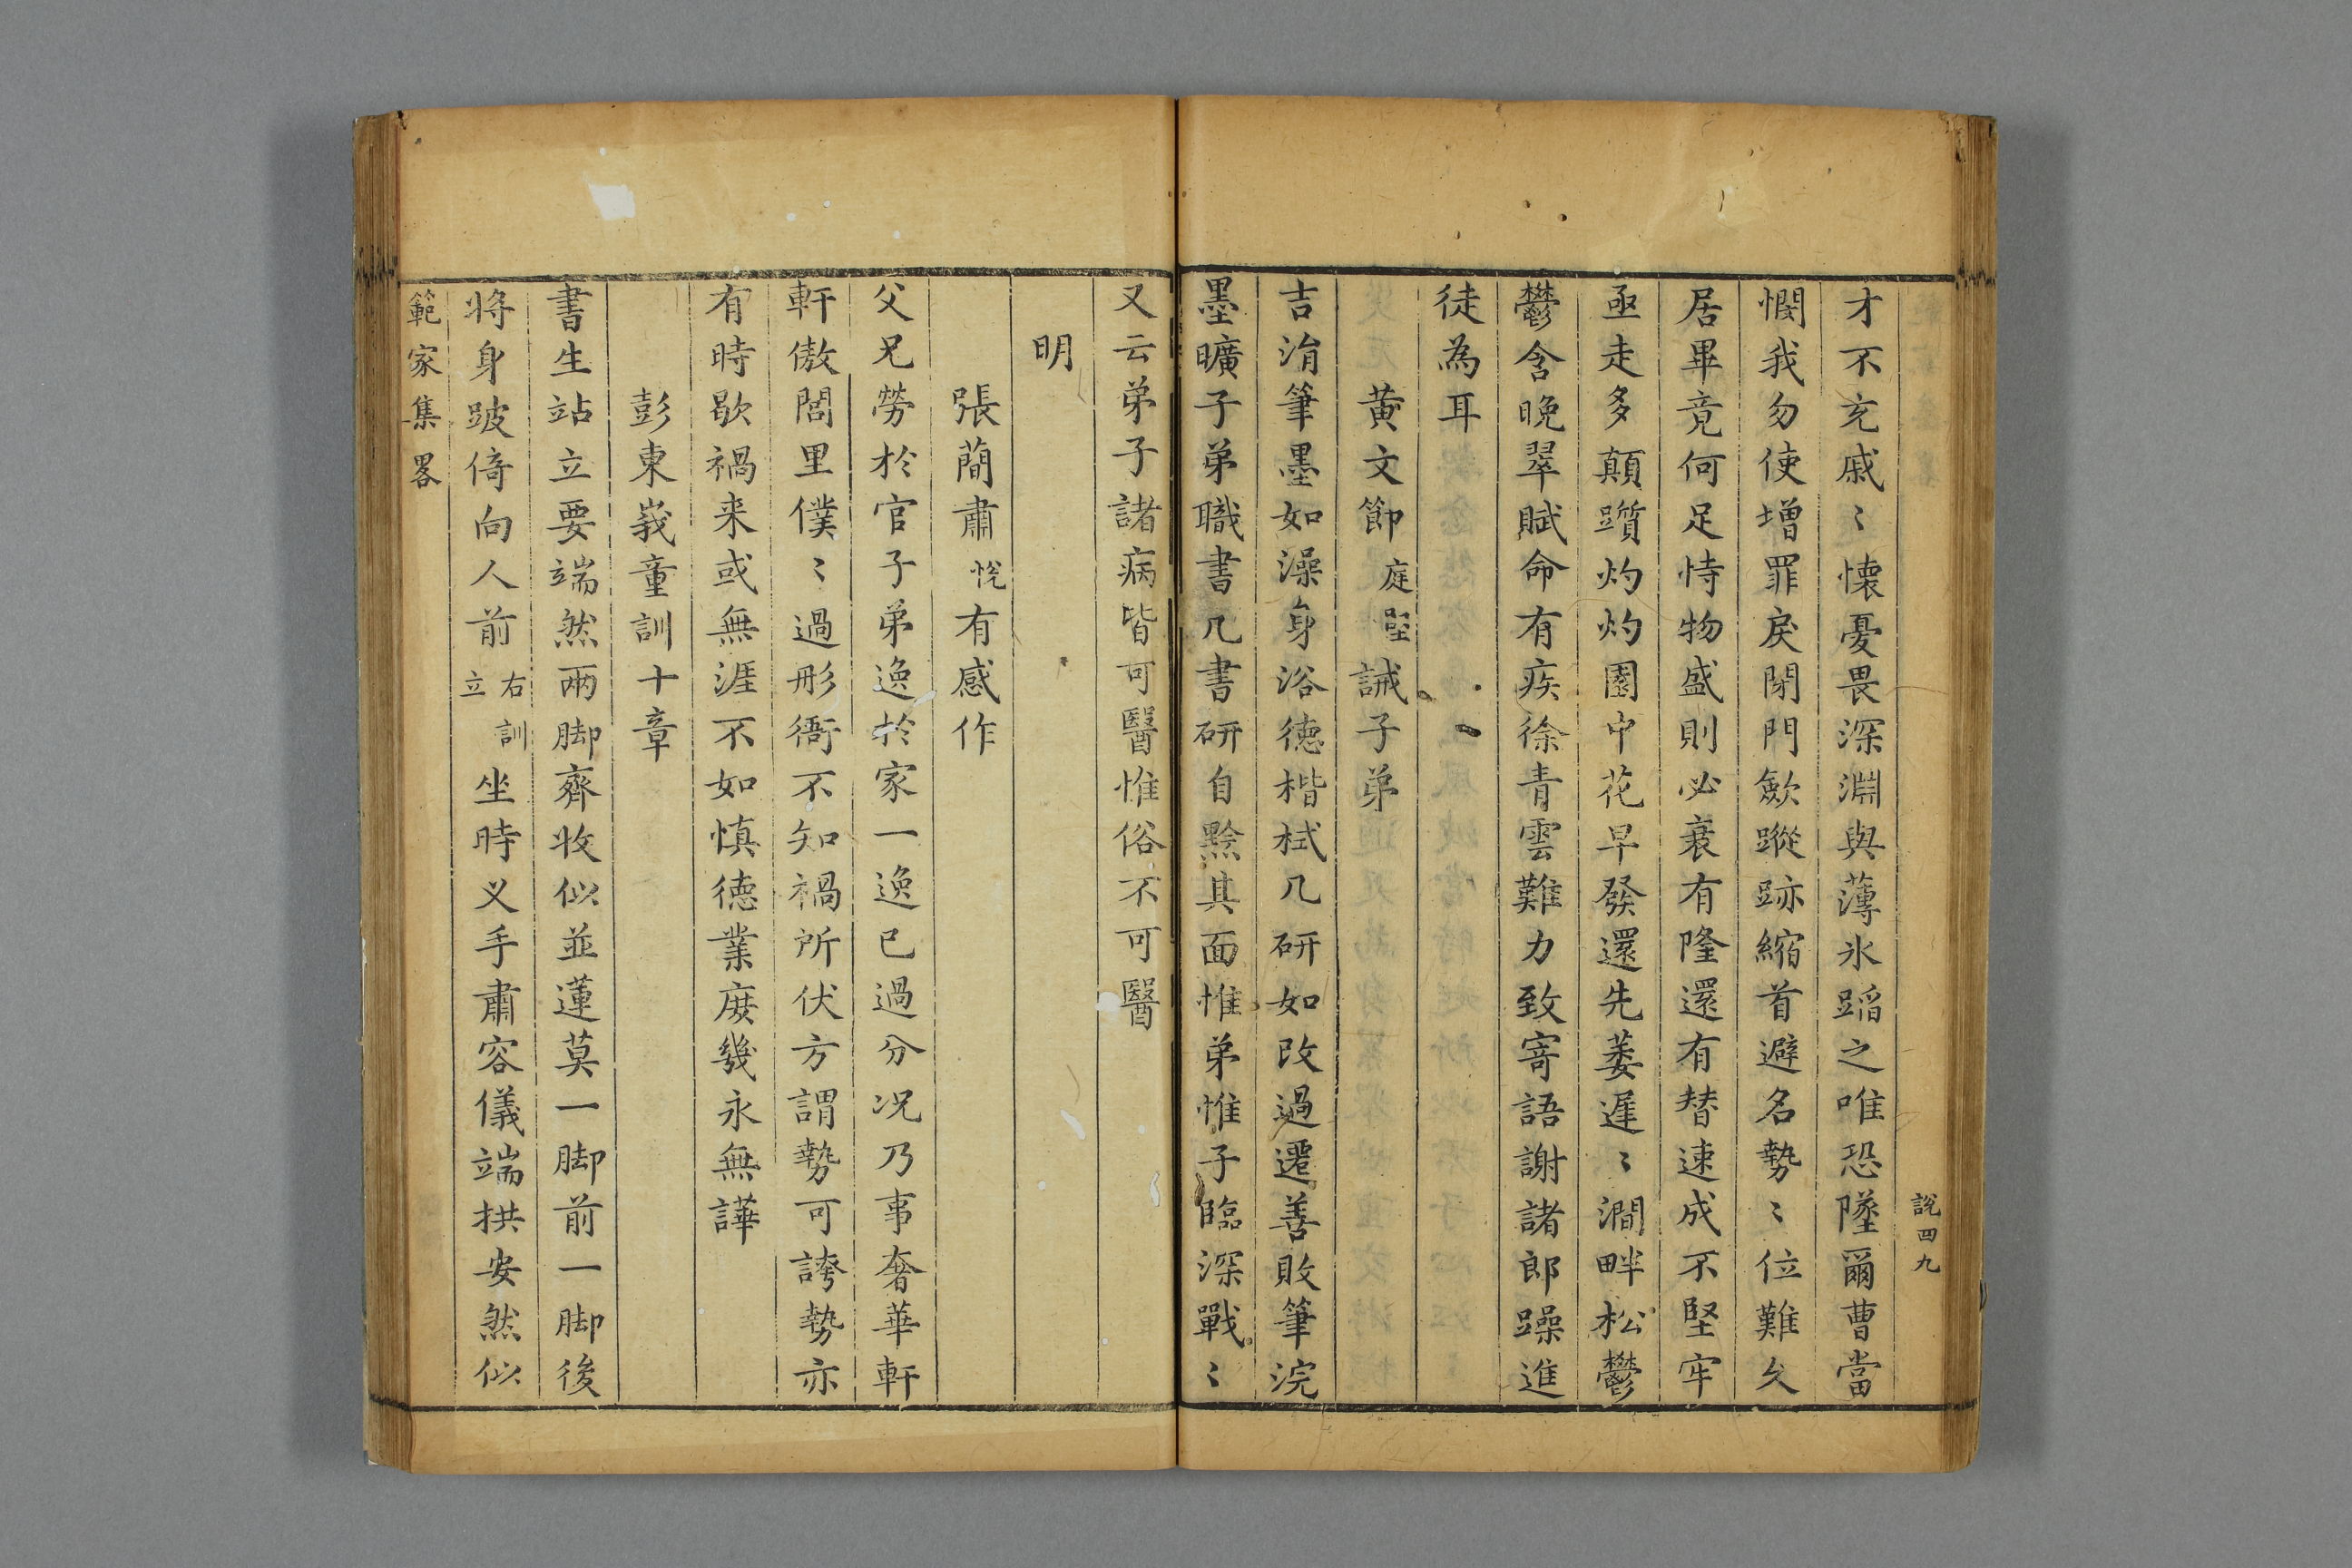 說四九
才不充戚〻懷憂畏深淵與薄氷蹈之唯恐墜爾曹當
憫我勿使增罪戾閉門歛蹤跡縮首避名勢〻位難久
居畢竟何足恃物盛則必衰有隆還有替速成不堅牢
亟走多顛躓灼灼園中花早發還先萎遲〻澗畔松鬱
鬱含晚翠賦命有疾徐青雲難力致寄語謝諸郎躁進
徒為耳
黄文節庭堅誡子弟
吉涓筆墨如澡身浴德楷栻几研如改過遷善敗筆浣
墨曠子弟職書几書研自黥其面惟弟惟子臨深戰〻
又云弟子諸病皆可醫惟俗不可醫
明
張蕳肅悅有感作
父兄勞於官子弟逸於家一逸已過分况乃事奢華軒
軒傲閭里僕〻過形衙不知禍所伏方謂勢可誇勢亦
有時歇禍来或無涯不如慎德業庶幾永無譁
彭東峩童訓十章
書生站立要端然兩脚齊收似並蓮莫一脚前一脚後
将身跛倚向人前右訓立坐時义手肅容儀端拱安然似
範家集畧